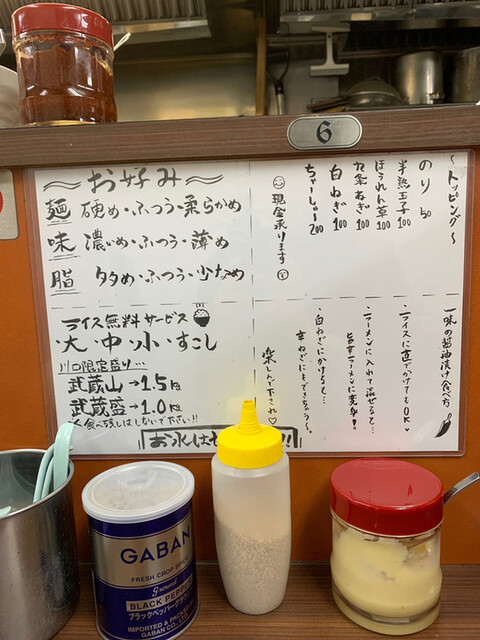 6
お好み
麺 硬め・ふつう・柔らかめ
味 濃いめ・ふつう・薄め
脂 多め・ふつう・少なめ
ライス無料サービス
大・中・小・すこし
川口限定盛り…
武蔵山→1.5
武蔵盛→1.0
食べ残しはしないで下さい!!
お水は
〜トッピング〜
のり 50
半熟玉子 100
ほうれん草 100
九条ねぎ 100
白ねぎ 100
ちゃーしゅー 200
現金承ります
一味の醤油漬け食べ方
・ライスに直でかけてもOK♥
・ラーメンに入れて混ぜると…
旨辛ラーメンに変身!
・白ねぎにかけると…
辛ねぎにもできちゃう〜。
楽しんで下され♡
GABAN
FRESH CROP-SPICE
Ground
BLACK PEPPER
ブラックペッパー
IMPORTED & PACKED
GABAN CO.